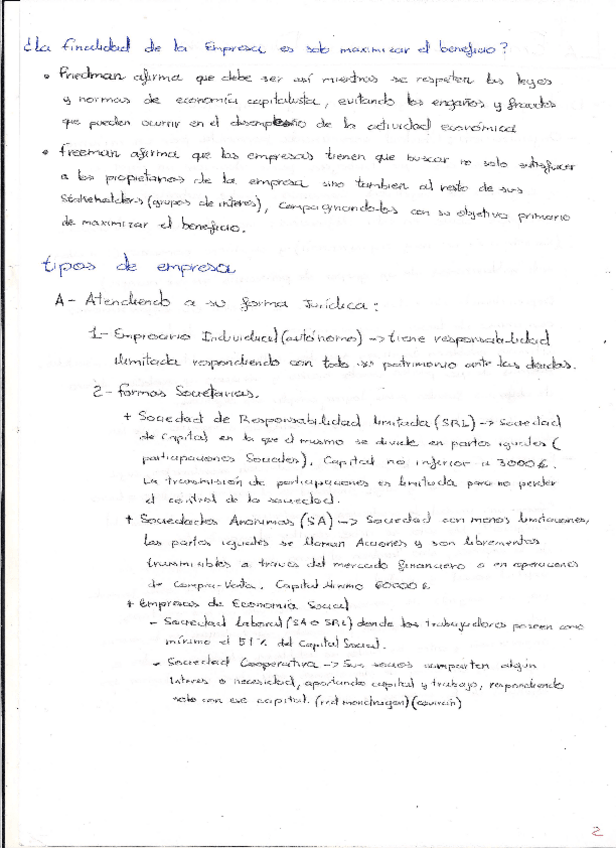 ¿La finalidad de la Empresa es solo maximizar el beneficio?
• Friedman afirma que debe ser así mientras se respeten las leyes
y normas de economía capitalista, evitando los engaños y fraudes
que pueden ocurrir en el desempeño de la actividad económica
• Freeman afirma que las empresas tienen que buscar no solo satisfacer
a los propietarios de la empresa sino tambien al resto de sus
Stakeholders (grupos de interés), compaginandolos con su objetivo primario
de maximizar el beneficio.
tipos de empresa
A- Atendiendo a su forma Jurídica:
1- Empresario Individual (autónomo) -> tiene responsabilidad
ilimitada respondiendo con todo su patrimonio ante las deudas.
2- formas Societarias.
+ Sociedad de Responsabilidad limitada (SRL) -> Sociedad
de Capital en la que el mismo se divide en partes iguales (
participaciones Sociales), Capital no inferior a 3000€.
La transmisión de participaciones es limitada para no perder
el control de la sociedad.
+ Sociedades Anonimas (SA) -> Sociedad con menos limitaciones,
las partes iguales se llaman Acciones y son librementes
transmisibles a traves del mercado financiero o en operaciones
de Compra-Venta. Capital Minimo 60000€
+ Empresas de Economía Social
- Sociedad Laboral (SA o SRL) donde los trabajadores poseen como
mínimo el 51% del Capital Social.
- Sociedad Cooperativa -> Sus socios comparten algún
Interes o necesidad, aportando capital y trabajo, respondiendo
solo con ese capital. (red mondragon)
2